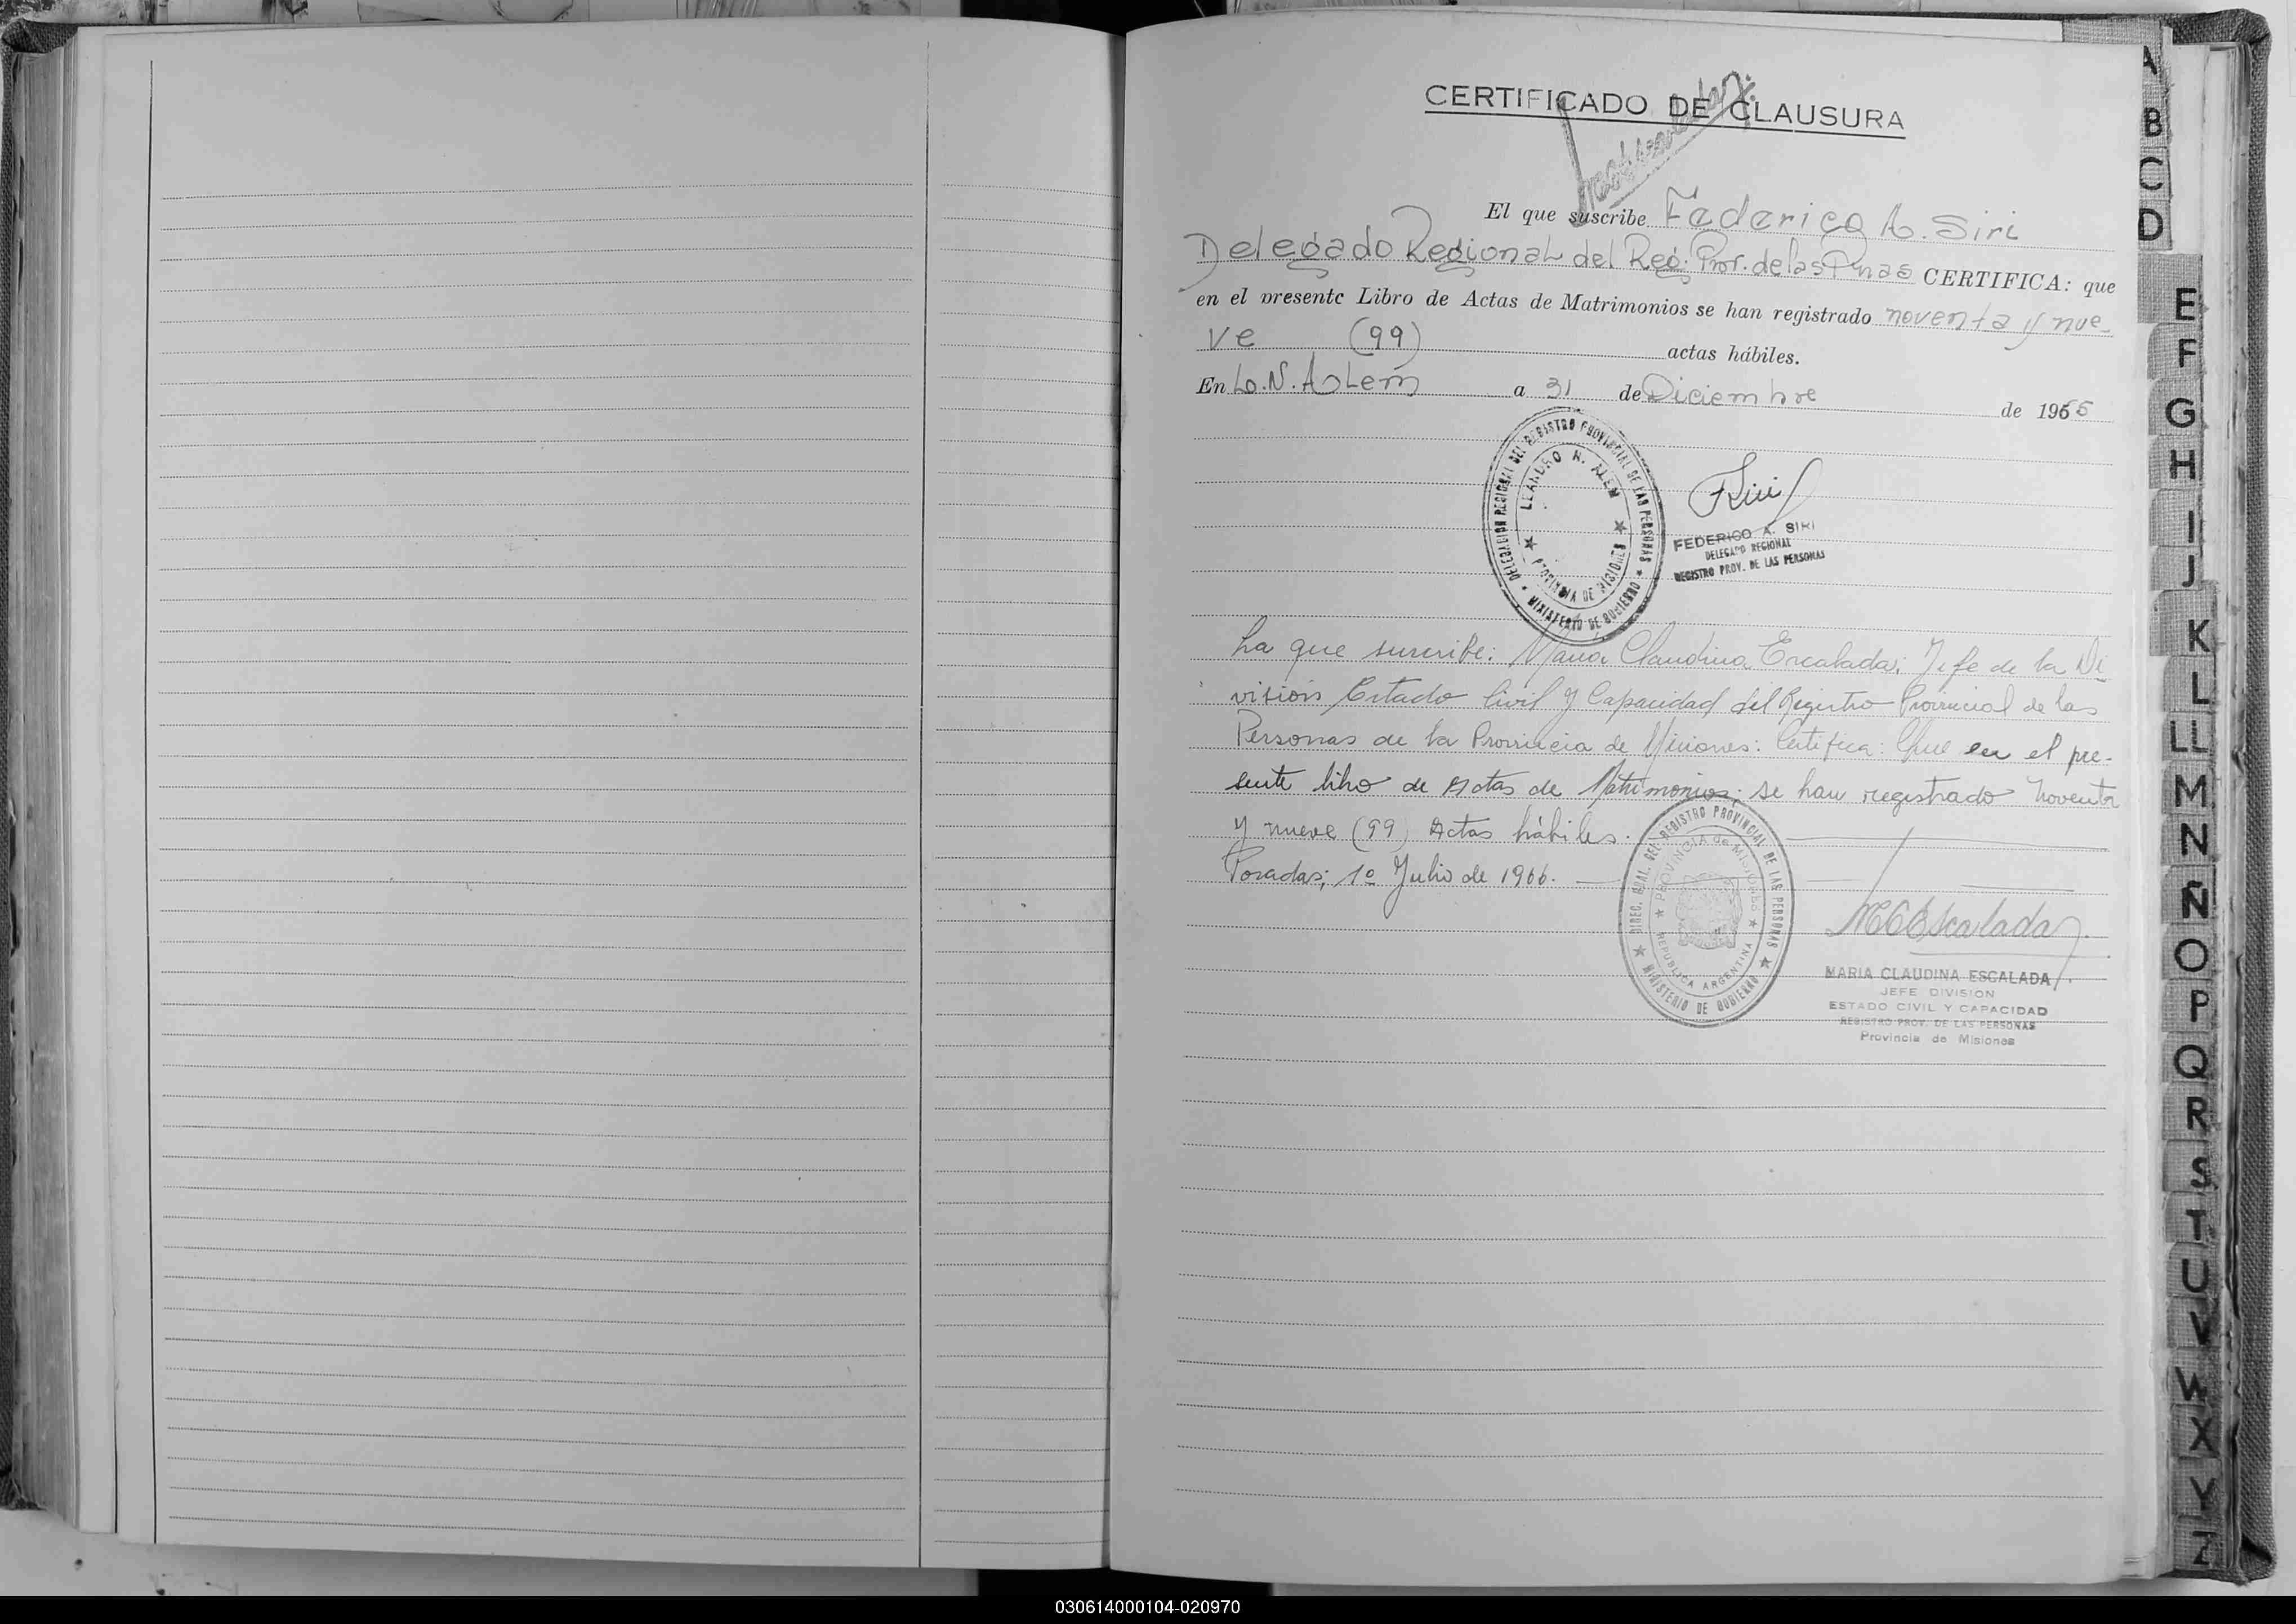 CERTIFICADO DE CLAUSURA
El que suscribe Federico A. Siri
Delegado Regional del Reg. Prov. de las Pnas CERTIFICA: que
en el presente Libro de Actas de Matrimonios se han registrado noventa y nue-
ve (99) actas hábiles.
En L. N. Alem a 31 de Diciembre de 1965
DELEGACION REGIONAL DEL REGISTRO PROVINCIAL DE LAS PERSONAS
MINISTERIO DE GOBIERNO
LEANDRO N. ALEM
PROVINCIA DE MISIONES
FEDERICO A. SIRI
DELEGADO REGIONAL
REGISTRO PROV. DE LAS PERSONAS
La que suscribe: Maria Claudina Escalada; Jefe de la Di
visión Estado Civil y Capacidad del Registro Provincial de las
Personas de la Provincia de Misiones: Certifica: Que en el pre-
sente libro de Actas de Matrimonios; se han registrado noventa
y nueve (99) Actas hábiles.
Posadas; 1º Julio de 1966.
DIREC. GRAL. DEL REGISTRO PROVINCIAL DE LAS PERSONAS
MINISTERIO DE GOBIERNO
PROVINCIA de MISIONES
REPUBLICA ARGENTINA
MCEscalada
MARIA CLAUDINA ESCALADA
JEFE DIVISION
ESTADO CIVIL Y CAPACIDAD
REGISTRO PROV. DE LAS PERSONAS
Provincia de Misiones
A
B
C
D
E
F
G
H
I
J
K
L
LL
M
N
Ñ
O
P
Q
R
S
T
U
V
W
X
Y
Z
030614000104-020970